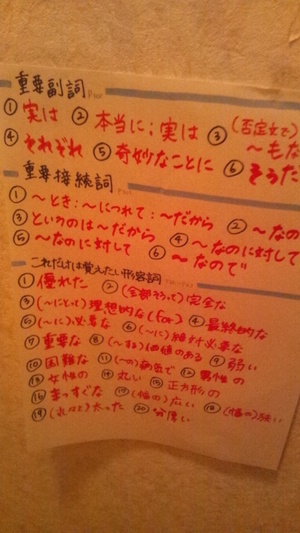 重要副詞
① 実は ② 本当に；実は ③ (否定文で)
～もな
④ それぞれ ⑤ 奇妙なことに ⑥ そうだ
重要接続詞
① ～とき：～につれて：～だから ② ～なの
③ というのは～だから ④ ～なのに対して
⑤ ～なのに対して ⑥ ～なので
これだけは覚えたい形容詞
① 優れた ② (全部そろって)完全な
③ (～にとって)理想的な(for) ④ 最終的な
⑤ (～に)必要な ⑥ (～に)絶対必要な
⑦ 重要な ⑧ (～する)価値のある ⑨ 弱い
⑩ 困難な ⑪ (～の)病気で ⑫ 男性の
⑬ 女性の ⑭ 丸い ⑮ 正方形の
⑯ まっすぐな ⑰ (幅の)広い ⑱ (幅の)狭い
⑲ 太った ⑳ 分厚い